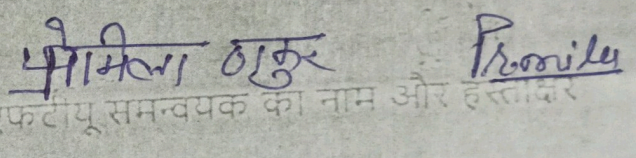 प्रोमिला ठाकुर Promila
एफटीयू समन्वयक का नाम और हस्ताक्षर